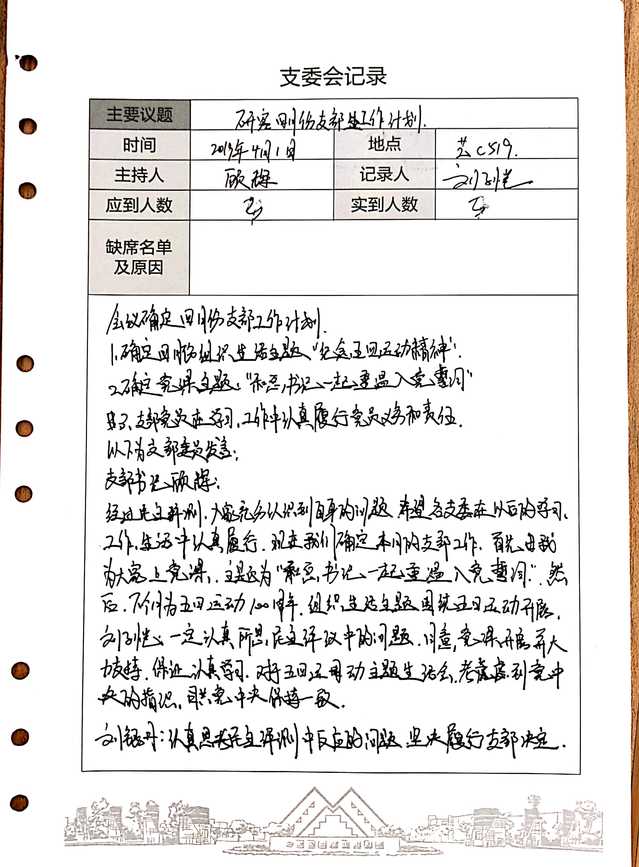 支委会记录
主要议题 研究四月份支部工作计划.
时间 2019年4月1日 地点 艺C519.
主持人 顾辉 记录人
应到人数 实到人数
缺席名单
及原因
会议确定四月份支部工作计划.
1.确定四月份组织生活主题“纪念五四运动精神”.
2.确定党课主题:“和总书记一起重温入党誓词”
3.支部党员在学习,工作中认真履行党员义务和责任.
以下为支部委员发言:
支部书记顾辉:
经过民主评测,大家充分认识到自身的问题,希望各支委在以后的学习,
工作,生活中认真履行.现在我们确定本月的支部工作,首先由我
为大家上党课,主题为“和总书记一起重温入党誓词”.然
后,下个月为五四运动100周年,组织生活主题围绕五四运动开展,
一定认真民主评议中的问题.同意党课开展并大
力支持,保证认真学习.对于五四运动主题生活会,考虑到党中
央的指识,同党中央保持一致.
认真思考民主评测中反应的问题,坚决履行支部决定.